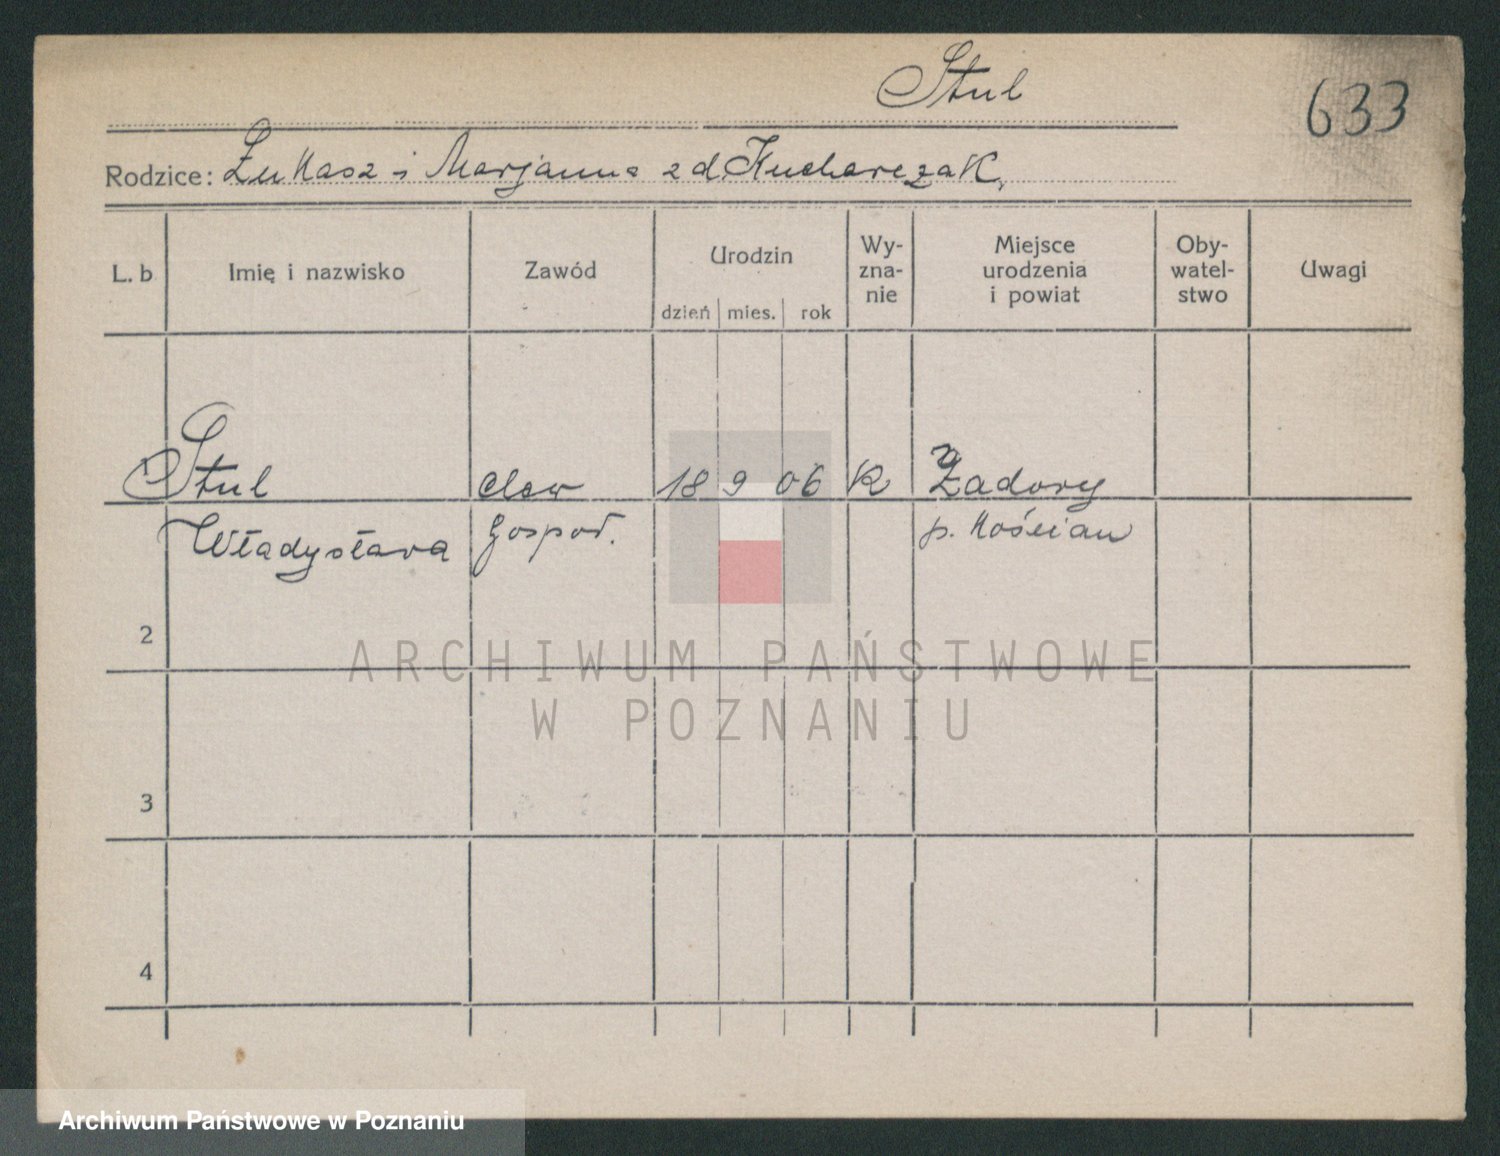 Stul
633
Rodzice: Łukasz i Marjanna z d. Kucharczak
L. b
Imię i nazwisko
Zawód
Urodzin
dzień mies. rok
Wy-
zna-
nie
Miejsce
urodzenia
i powiat
Oby-
watel-
stwo
Uwagi
1 Stul
Władysława
Gospod.
18 9 06 K
Zadory
p. Kościan
2
3
4
ARCHIWUM PAŃSTWOWE
W POZNANIU
Archiwum Państwowe w Poznaniu